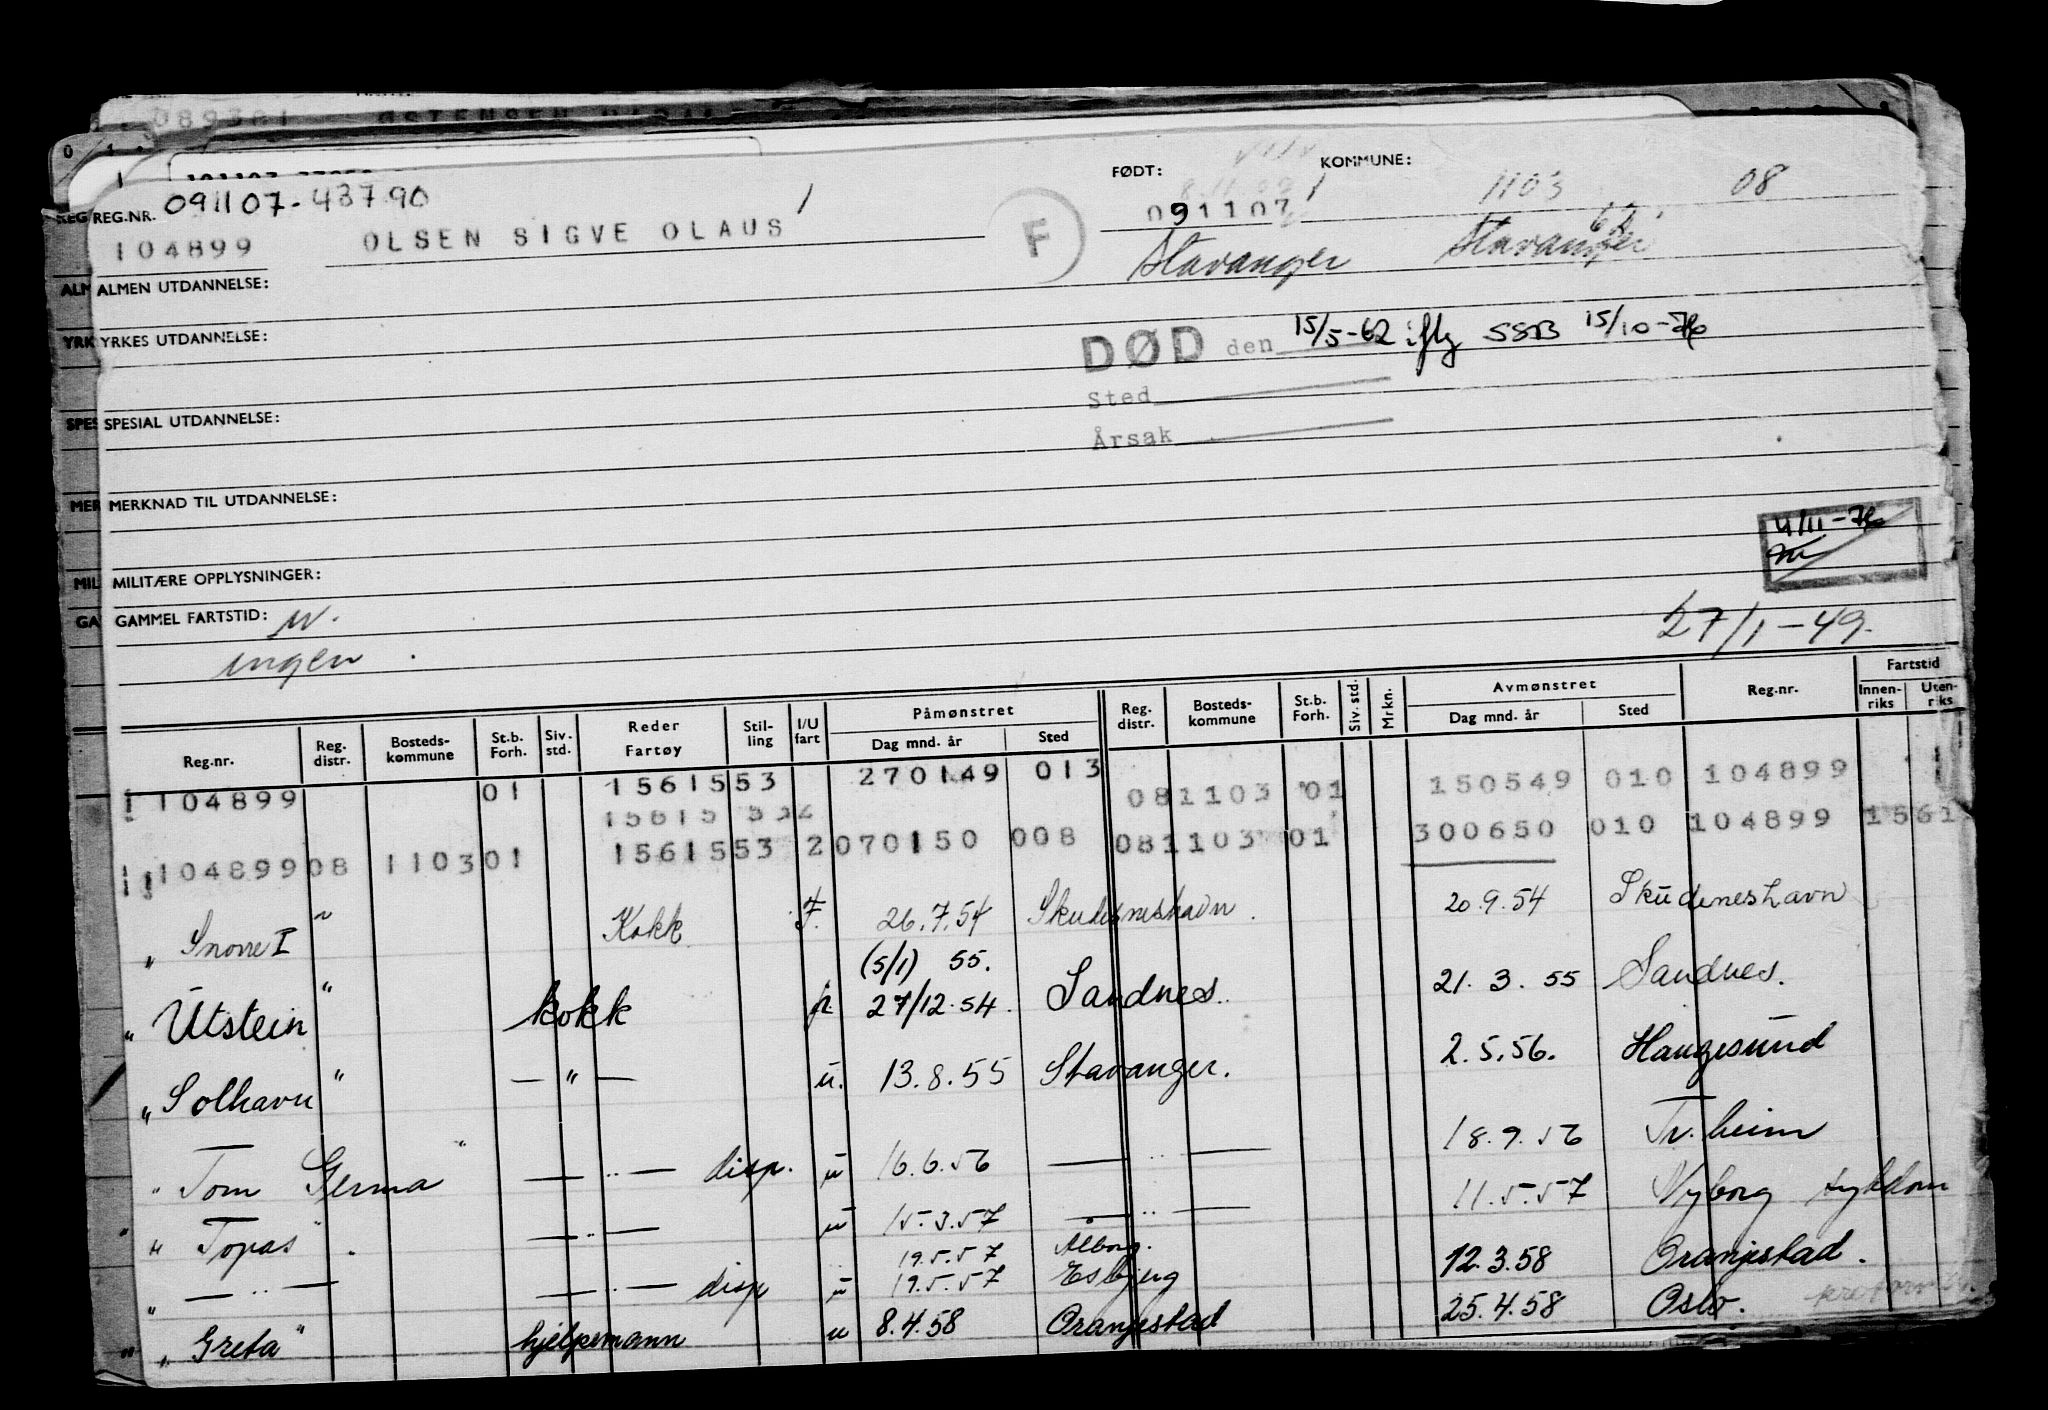 089381 ØSTENSEN
REG.NR. 091107-43790
104899 OLSEN SIGVE OLAUS
F
FØDT: KOMMUNE:
091107 1103 08
Stavanger Stavanger 62
ALMEN UTDANNELSE:
YRKES UTDANNELSE:
DØD den 15/5-62 iflg SSB 15/10-76
Sted
Årsak
SPESIAL UTDANNELSE:
MERKNAD TIL UTDANNELSE:
4/11-76
MILITÆRE OPPLYSNINGER:
GAMMEL FARTSTID:
ingen
27/1-49.
Reg.nr. Reg. distr. Bosteds-kommune St.b. Forh. Siv. std. Reder Fartøy Stil-ling I/U fart Påmønstret Dag mnd. år Sted Reg. distr. Bosteds-kommune St.b. Forh. Siv. std. Mrkn. Avmønstret Dag mnd. år Sted Reg.nr. Fartstid Innen-riks Uten-riks
104899 01 1561553 270149 013 081103 01 150549 010 104899
15615 532
104899 08 1103 01 1561553 2 070150 008 081103 01 300650 010 104899 1561
" Snorre I " Kokk F. 26.7.54 Skudesneshavn. 20.9.54 Skudeneshavn
(5/1) 55.
" Utstein " kokk 27/12.54. Sandnes. 21.3.55 Sandnes.
" Solhavn " — " — u. 13.8.55 Stavanger. 2.5.56. Haugesund
" Tom Germa " — " — disp. u 16.6.56 — " — 18.9.56 Tr.heim
" Topas " — " — u 15.3.57 — " — 11.5.57 Nyborg sykdom
19.5.57 Ålborg.
" — " — — " — disp u 19.5.57 Esbjerg 12.3.58 Oranjestad.
" Greta " hjelpemann u 8.4.58 Oranjestad 25.4.58 Oslo.